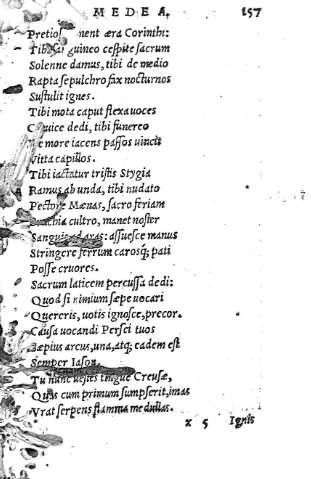 MEDEA. 157
nent æra Corinthi:
guineo cespite sacrum
Solenne damus, tibi de medio
Rapta sepulchro fax nocturnos
Sustulit ignes.
Tibi mota caput flexa uoces
dedi, tibi funereo
more iacens passos uincit
Vitta capillos.
Tibi iactatur tristis Stygia
Ramus ab unda, tibi nudato
Pectore Mænas, sacro feriam
cultro, manet noster
aras: assuesce manus
Stringere ferrum carosq; pati
Posse cruores.
Sacrum laticem percussa dedi:
Quod si nimium sæpe uocari
Quereris, uotis ignosce, precor.
Causa uocandi Persei tuos
Sæpius arcus, una, atq; eadem est
Semper Iason.
Tu nunc uestes tingue Creusæ,
Quas cum primum sumpserit, imas
Vrat serpens flamma medullas.
x 5 Ignis